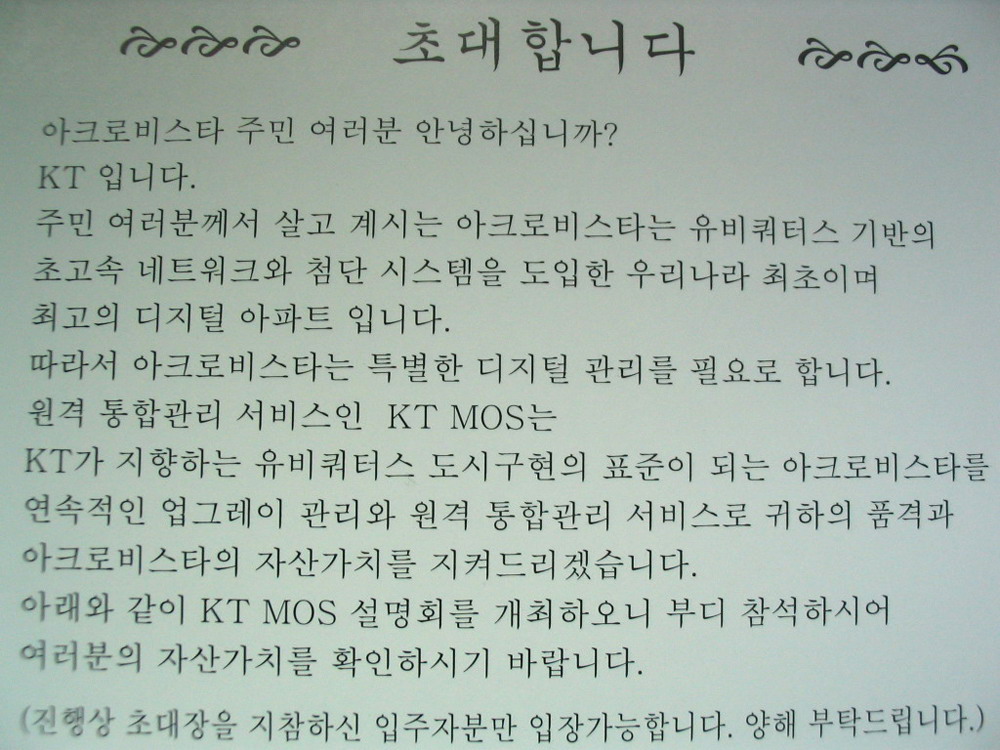 초대합니다
아크로비스타 주민 여러분 안녕하십니까?
KT 입니다.
주민 여러분께서 살고 계시는 아크로비스타는 유비쿼터스 기반의
초고속 네트워크와 첨단 시스템을 도입한 우리나라 최초이며
최고의 디지털 아파트 입니다.
따라서 아크로비스타는 특별한 디지털 관리를 필요로 합니다.
원격 통합관리 서비스인 KT MOS는
KT가 지향하는 유비쿼터스 도시구현의 표준이 되는 아크로비스타를
연속적인 업그레이 관리와 원격 통합관리 서비스로 귀하의 품격과
아크로비스타의 자산가치를 지켜드리겠습니다.
아래와 같이 KT MOS 설명회를 개최하오니 부디 참석하시어
여러분의 자산가치를 확인하시기 바랍니다.
(진행상 초대장을 지참하신 입주자분만 입장가능합니다. 양해 부탁드립니다.)